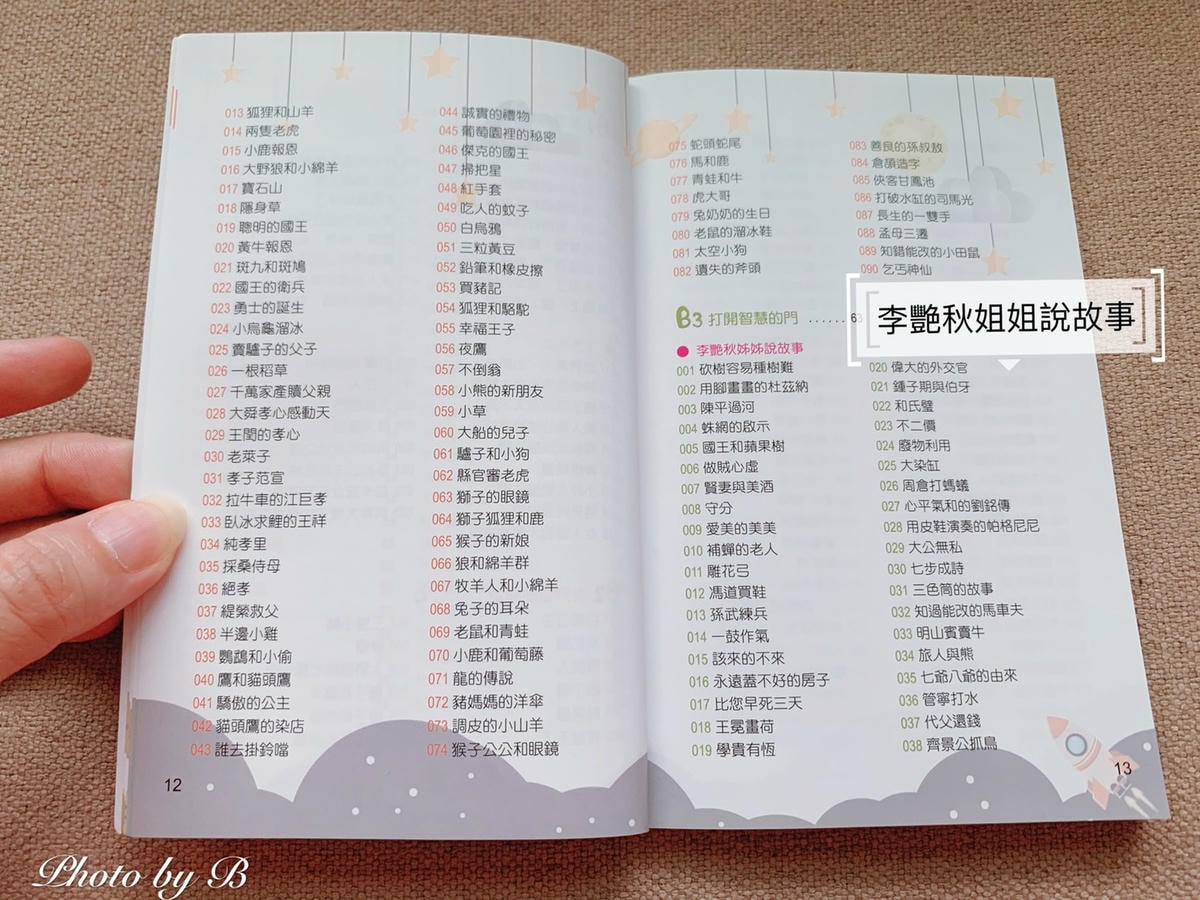 013 狐狸和山羊
014 兩隻老虎
015 小鹿報恩
016 大野狼和小綿羊
017 寶石山
018 隱身草
019 聰明的國王
020 黃牛報恩
021 斑九和斑鳩
022 國王的衛兵
023 勇士的誕生
024 小烏龜溜冰
025 賣驢子的父子
026 一根稻草
027 千萬家產贖父親
028 大舜孝心感動天
029 王閏的孝心
030 老萊子
031 孝子范宣
032 拉牛車的江巨孝
033 臥冰求鯉的王祥
034 純孝里
035 採桑侍母
036 絕孝
037 緹縈救父
038 半邊小雞
039 鸚鵡和小偷
040 鷹和貓頭鷹
041 驕傲的公主
042 貓頭鷹的染店
043 誰去掛鈴噹
044 誠實的禮物
045 葡萄園裡的秘密
046 傑克的國王
047 掃把星
048 紅手套
049 吃人的蚊子
050 白烏鴉
051 三粒黃豆
052 鉛筆和橡皮擦
053 買豬記
054 狐狸和駱駝
055 幸福王子
056 夜鷹
057 不倒翁
058 小熊的新朋友
059 小草
060 大船的兒子
061 驢子和小狗
062 縣官審老虎
063 獅子的眼鏡
064 獅子狐狸和鹿
065 猴子的新娘
066 狼和綿羊群
067 牧羊人和小綿羊
068 兔子的耳朵
069 老鼠和青蛙
070 小鹿和葡萄藤
071 龍的傳說
072 豬媽媽的洋傘
073 調皮的小山羊
074 猴子公公和眼鏡
12
075 蛇頭蛇尾
076 馬和鹿
077 青蛙和牛
078 虎大哥
079 兔奶奶的生日
080 老鼠的溜冰鞋
081 太空小狗
082 遺失的斧頭
083 善良的孫叔敖
084 倉頡造字
085 俠客甘鳳池
086 打破水缸的司馬光
087 長生的一雙手
088 孟母三遷
089 知錯能改的小田鼠
090 乞丐神仙
B3 打開智慧的門 ......63
李艷秋姐姐說故事
李艷秋姊姊說故事
001 砍樹容易種樹難
002 用腳畫畫的杜茲納
003 陳平過河
004 蛛網的啟示
005 國王和蘋果樹
006 做賊心虛
007 賢妻與美酒
008 守分
009 愛美的美美
010 補蟬的老人
011 雕花弓
012 馮道買鞋
013 孫武練兵
014 一鼓作氣
015 該來的不來
016 永遠蓋不好的房子
017 比您早死三天
018 王冕畫荷
019 學貴有恆
020 偉大的外交官
021 鍾子期與伯牙
022 和氏璧
023 不二價
024 廢物利用
025 大染缸
026 周倉打螞蟻
027 心平氣和的劉銘傳
028 用皮鞋演奏的帕格尼尼
029 大公無私
030 七步成詩
031 三色筒的故事
032 知過能改的馬車夫
033 明山賓賣牛
034 旅人與熊
035 七爺八爺的由來
036 管寧打水
037 代父還錢
038 齊景公抓鳥
13
Photo by B